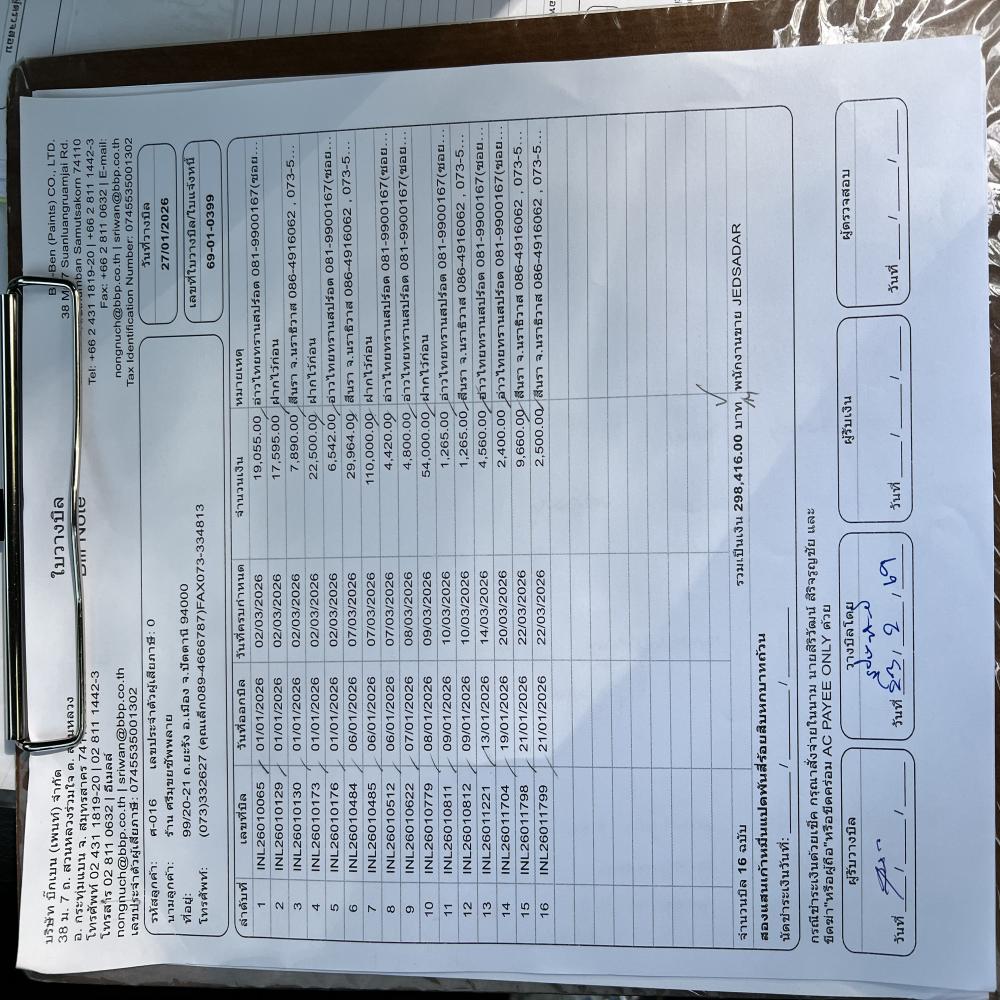 ใบวางบิล
Bill Note
บริษัท บิ๊กเบน (เพนท์) จำกัด
38 ม. 7 ถ. สวนหลวงร่วมใจ ต.
อ. กระทุ่มแบน จ. สมุทรสาคร
โทรศัพท์ 02 431 1819-20 | 02 811 1442-3
โทรสาร 02 811 0632 | อีเมลล์
nongnuch@bbp.co.th | sriwan@bbp.co.th
เลขประจำตัวผู้เสียภาษี: 0745535001302
Ben (Paints) CO., LTD.
Suanluangruamjai Rd.
Samutsakorn 74110
Tel: +66 2 431 1819-20 | +66 2 811 1442-3
Fax: +66 2 811 0632 | E-mail:
nongnuch@bbp.co.th | sriwan@bbp.co.th
Tax Identification Number: 0745535001302
รหัสลูกค้า: ศ-016 เลขประจำตัวผู้เสียภาษี: 0
นามลูกค้า: ร้าน ศรีมุขยชัพพลาย
ที่อยู่: 99/20-21 ถ.ยะรัง อ.เมือง จ.ปัตตานี 94000
โทรศัพท์: (073)332627 (คุณเล็ก089-4666787)FAX073-334813
วันที่วางบิล
27/01/2026
เลขที่ใบวางบิล/ใบแจ้งหนี้
69-01-0399
ลำดับที่ เลขที่บิล วันที่ออกบิล วันที่ครบกำหนด จำนวนเงิน หมายเหตุ
1 INL26010065 01/01/2026 02/03/2026 19,055.00 อ่าวไทยทรานสปร์อต 081-9900167(ซอย...
2 INL26010129 01/01/2026 02/03/2026 17,595.00 ฝากไว้ก่อน
3 INL26010130 01/01/2026 02/03/2026 7,890.00 สีนรา จ.นราธิวาส 086-4916062 , 073-5...
4 INL26010173 01/01/2026 02/03/2026 22,500.00 ฝากไว้ก่อน
5 INL26010176 01/01/2026 02/03/2026 6,542.00 อ่าวไทยทรานสปร์อต 081-9900167(ซอย...
6 INL26010484 06/01/2026 07/03/2026 29,964.00 สีนรา จ.นราธิวาส 086-4916062 , 073-5...
7 INL26010485 06/01/2026 07/03/2026 110,000.00 ฝากไว้ก่อน
8 INL26010512 06/01/2026 07/03/2026 4,420.00 อ่าวไทยทรานสปร์อต 081-9900167(ซอย...
9 INL26010622 07/01/2026 08/03/2026 4,800.00 อ่าวไทยทรานสปร์อต 081-9900167(ซอย...
10 INL26010779 08/01/2026 09/03/2026 54,000.00 ฝากไว้ก่อน
11 INL26010811 09/01/2026 10/03/2026 1,265.00 อ่าวไทยทรานสปร์อต 081-9900167(ซอย...
12 INL26010812 09/01/2026 10/03/2026 1,265.00 สีนรา จ.นราธิวาส 086-4916062 , 073-5...
13 INL26011221 13/01/2026 14/03/2026 4,560.00 อ่าวไทยทรานสปร์อต 081-9900167(ซอย...
14 INL26011704 19/01/2026 20/03/2026 2,400.00 อ่าวไทยทรานสปร์อต 081-9900167(ซอย...
15 INL26011798 21/01/2026 22/03/2026 9,660.00 สีนรา จ.นราธิวาส 086-4916062 , 073-5...
16 INL26011799 21/01/2026 22/03/2026 2,500.00 สีนรา จ.นราธิวาส 086-4916062 , 073-5...
จำนวนบิล 16 ฉบับ รวมเป็นเงิน 298,416.00 บาท พนักงานขาย JEDSADAR
สองแสนเก้าหมื่นแปดพันสี่ร้อยสิบหกบาทถ้วน
นัดชำระเงินวันที่: ____/____/____
กรณีชำระเงินด้วยเช็ค กรุณาสั่งจ่ายในนาม นายสิริวัฒน์ สิริจรูญชัย และ
ขีดฆ่า"หรือผู้ถือ"หรือขีดคร่อม AC PAYEE ONLY ด้วย
ผู้รับวางบิล วางบิลโดย ผู้รับเงิน ผู้ตรวจสอบ
วันที่ ____/____/____ วันที่ / 2 / วันที่ ____/____/____ วันที่ ____/____/____